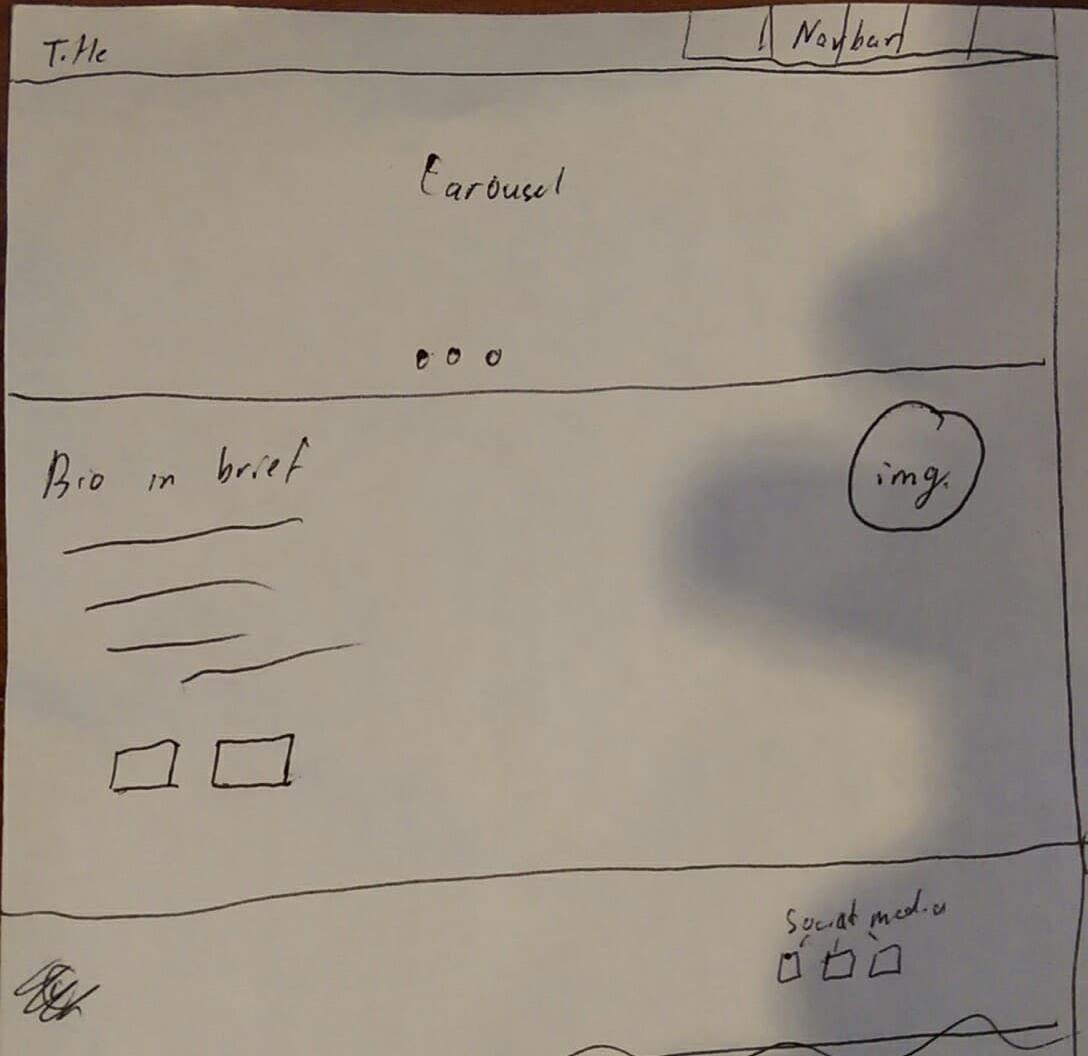 Title
Navbar
Carousel
Bio in brief
img.
Social media